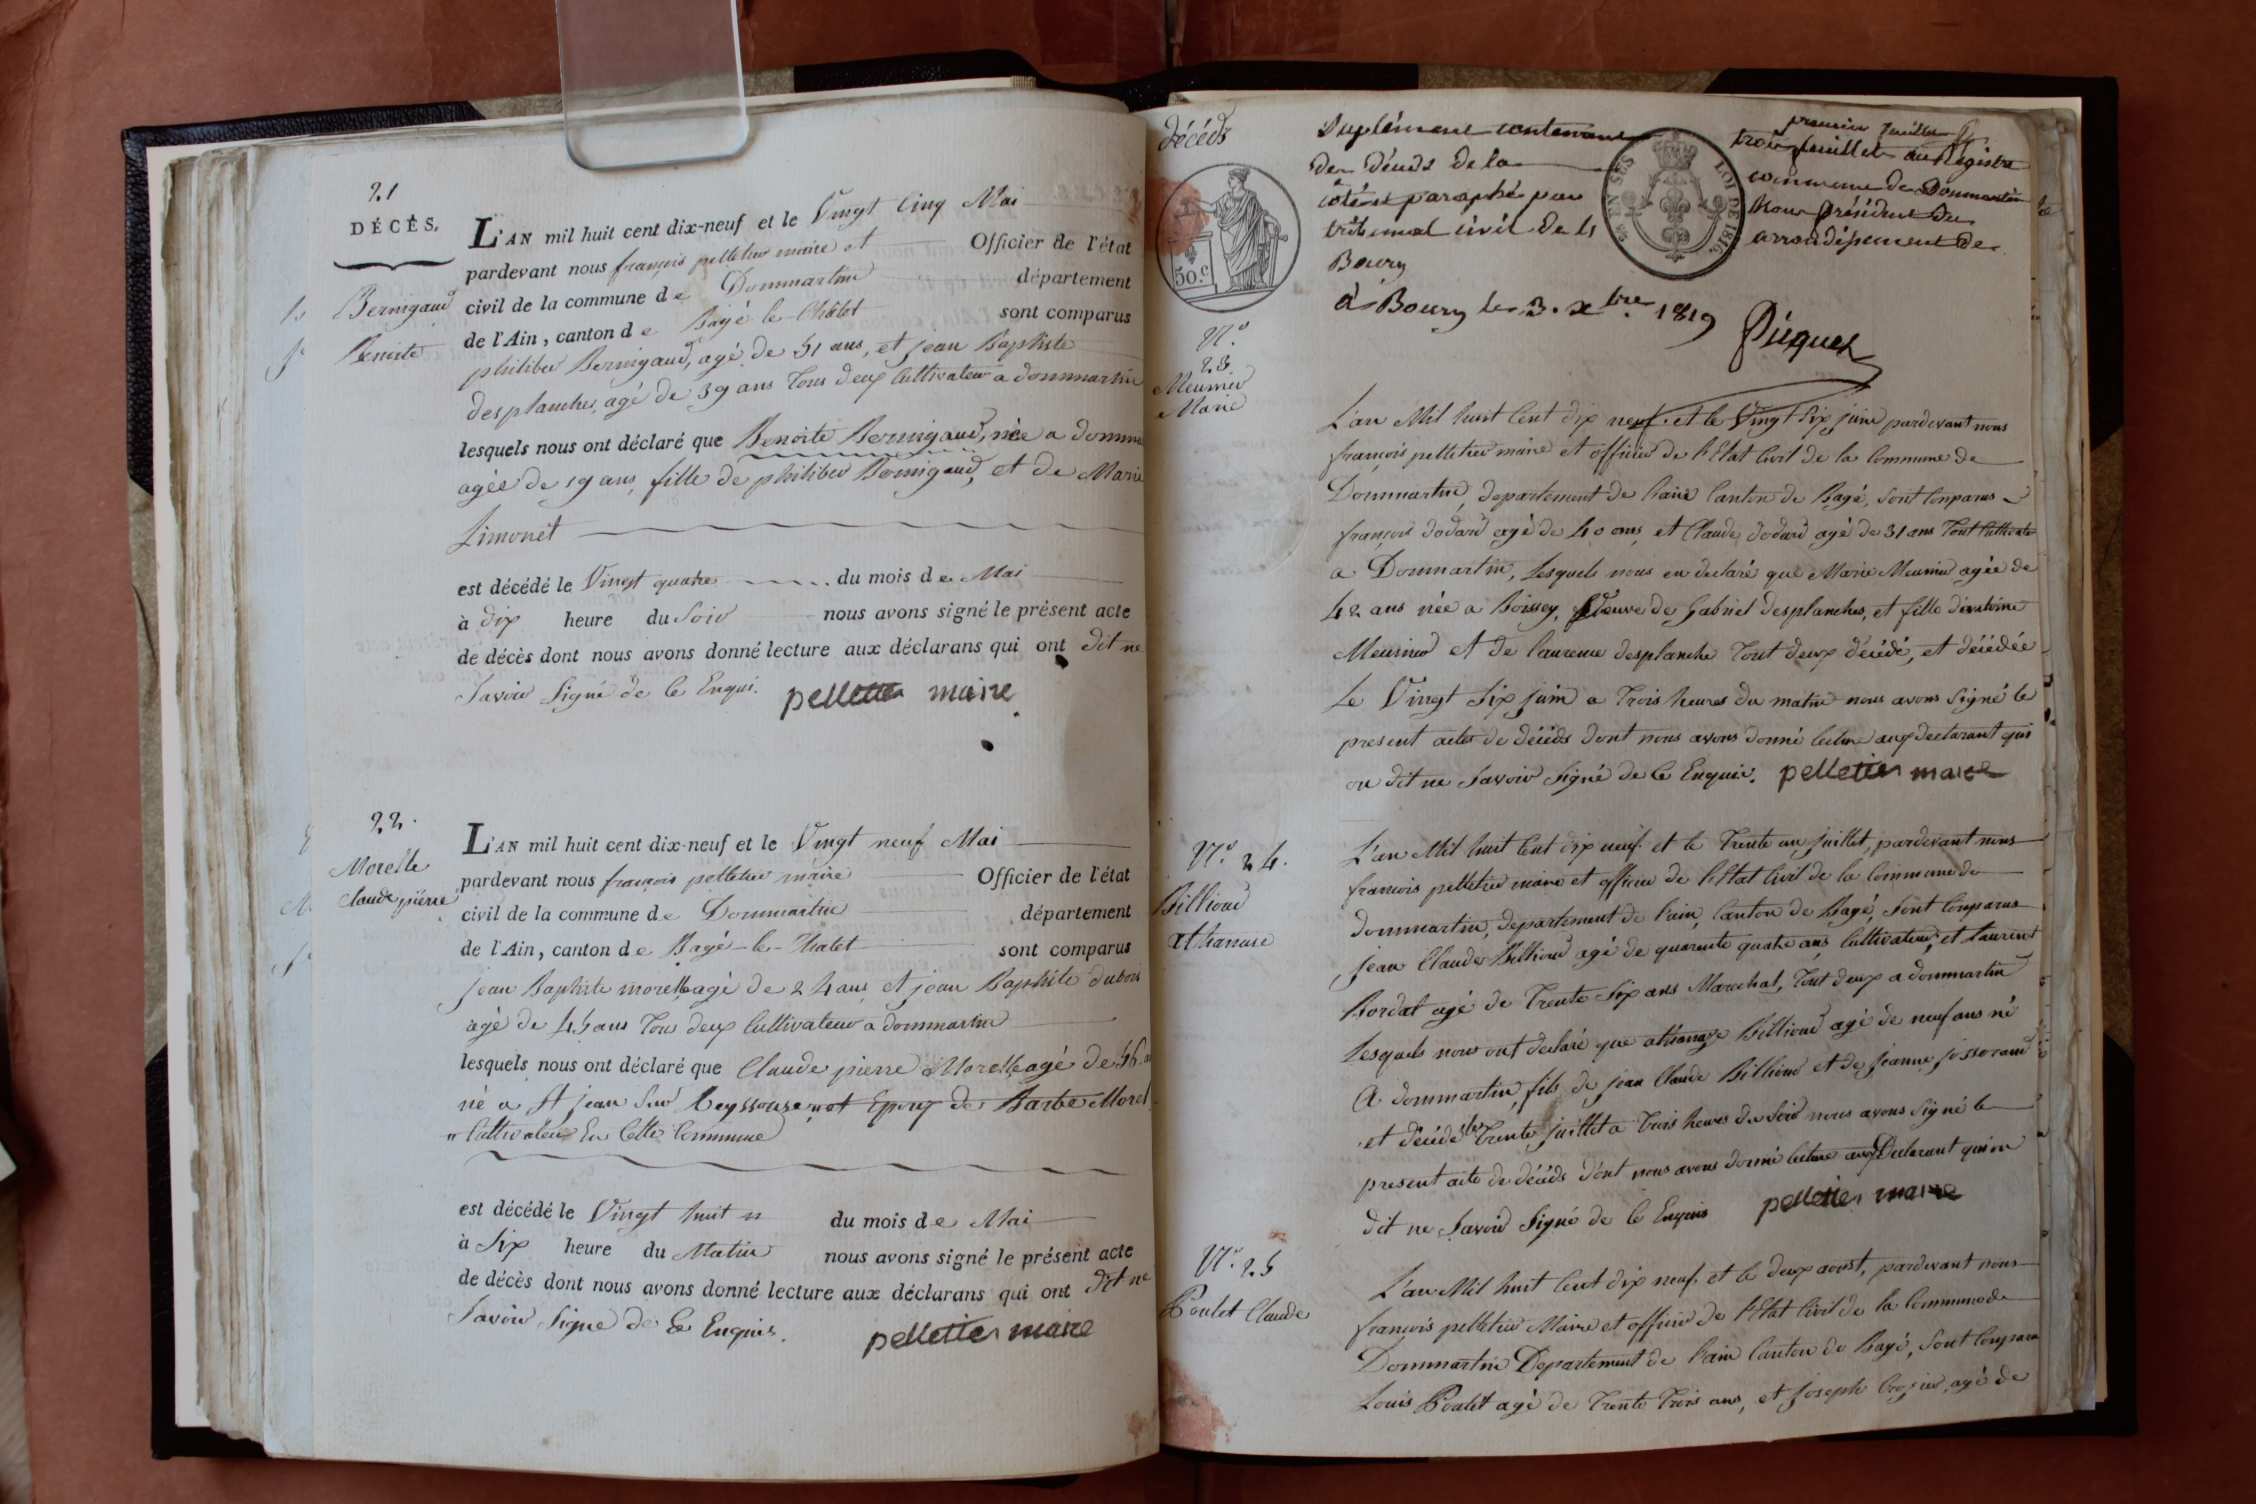 21
DÉCÈS.
Bernigaud
Benoite
L'AN mil huit cent dix-neuf et le Vingt Cinq Mai
pardevant nous françois pelletier maire et Officier de l'état
civil de la commune de Dommartin département
de l'Ain, canton de Bagé le Châlet sont comparus
philiber Bernigaud, agé de 51 ans, et jean Baptiste
desplanches, agé de 39 ans Tous deux Cultivateur a dommartin
lesquels nous ont déclaré que Benoite Bernigaud, née a domma
agée de 19 ans, fille de philiber Bernigaud, et de Marie
Limonet
est décédé le Vingt quatre du mois de Mai
à dix heure du Soir nous avons signé le présent acte
de décès dont nous avons donné lecture aux déclarans qui ont dit ne
Savoir Signé de Ce Enquis. pelletier maire
22.
Morelle
Claude pierre
L'AN mil huit cent dix-neuf et le Vingt neuf Mai
pardevant nous françois pelletier maire Officier de l'état
civil de la commune de Dommartin département
de l'Ain, canton de Bagé-le-Chalet sont comparus
jean Baptiste morelle agé de 24 ans et jean Baptiste dubois
agé de 45 ans Tous deux Cultivateur a dommartin
lesquels nous ont déclaré que Claude pierre Morelle agé de 56
né a St jean Sur Reyssouse Epoux de Barbe Morel
Cultivateur En Cette Commune
est décédé le Vingt huit du mois de Mai
à Six heure du Matin nous avons signé le présent acte
de décès dont nous avons donné lecture aux déclarans qui ont dit ne
Savoir Signe de Ce Enquis. pelletier maire
décéds
50.c
EN SUS LOI DE 1816.
Suplément contenant trois feuillets au Registre
premier feuillet
des Décéds de la commune de Dommartin
côté et paraphé par Nous Président du
tribunal civil de l'arrondissement de
Bourg
à Bourg le 3. Xbre 1819
Piquet
N°
23
Meunier
Marie
L'an Mil huit Cent dix neuf et le Vingt Six juin pardevant nous
françois pelletier maire et officier de l'Etat Civil de la Commune de
Dommartin, departement de l'ain Canton de Bagé, Sont Comparus
françois dodard agé de 40 ans, et Claude dodard agé de 31 ans Tout Cultivate
a Dommartin, Lesquels nous on declaré que Marie Meunier agée de
42 ans née a Boissey, Veuve de Gabriel desplanches, et fille d'antoine
Meunier et de laurence desplanche Tout deux décédé, et décédée
Le Vingt Six juin a Trois heures du matin nous avons Signé le
present acte de décéds dont nous avons donné lecture aux declarant qui
on dit ne Savoir Signé de Ce Enquis. pelletier maire
N° 24.
Billioud
athanase
L'an Mil huit Cent dix neuf et le Trente un juillet, pardevant nous
françois pelletier maire et officier de l'Etat Civil de la Commune de
dommartin, departement de l'ain, Canton de Bagé, Sont Comparus
jean Claude Billioud agé de quarente quatre ans, Cultivateur, et Laurent
Bordat agé de Trente Six ans Marechal, Tout deux a dommartin
Lesquels nous ont declaré que athanaze Billioud agé de neuf ans né
A dommartin, fils de jean Claude Billioud et de jeanne josserand
et décédé le Trente juillet a Trois heures du Soir nous avons Signé le
present acte de décéds dont nous avons donné lecture aux Declarant qui on
dit ne Savoir Signé de Ce Enquis pelletier maire
N° 25
Poulet Claude
L'an Mil huit Cent dix neuf et le deux aoust, pardevant nous
françois pelletier Maire et officier de l'Etat Civil de la Commune de
Dommartin Departement de l'ain Canton de Bagé, Sont Compara
Louis Poulet agé de Trente Trois ans, et joseph agé de